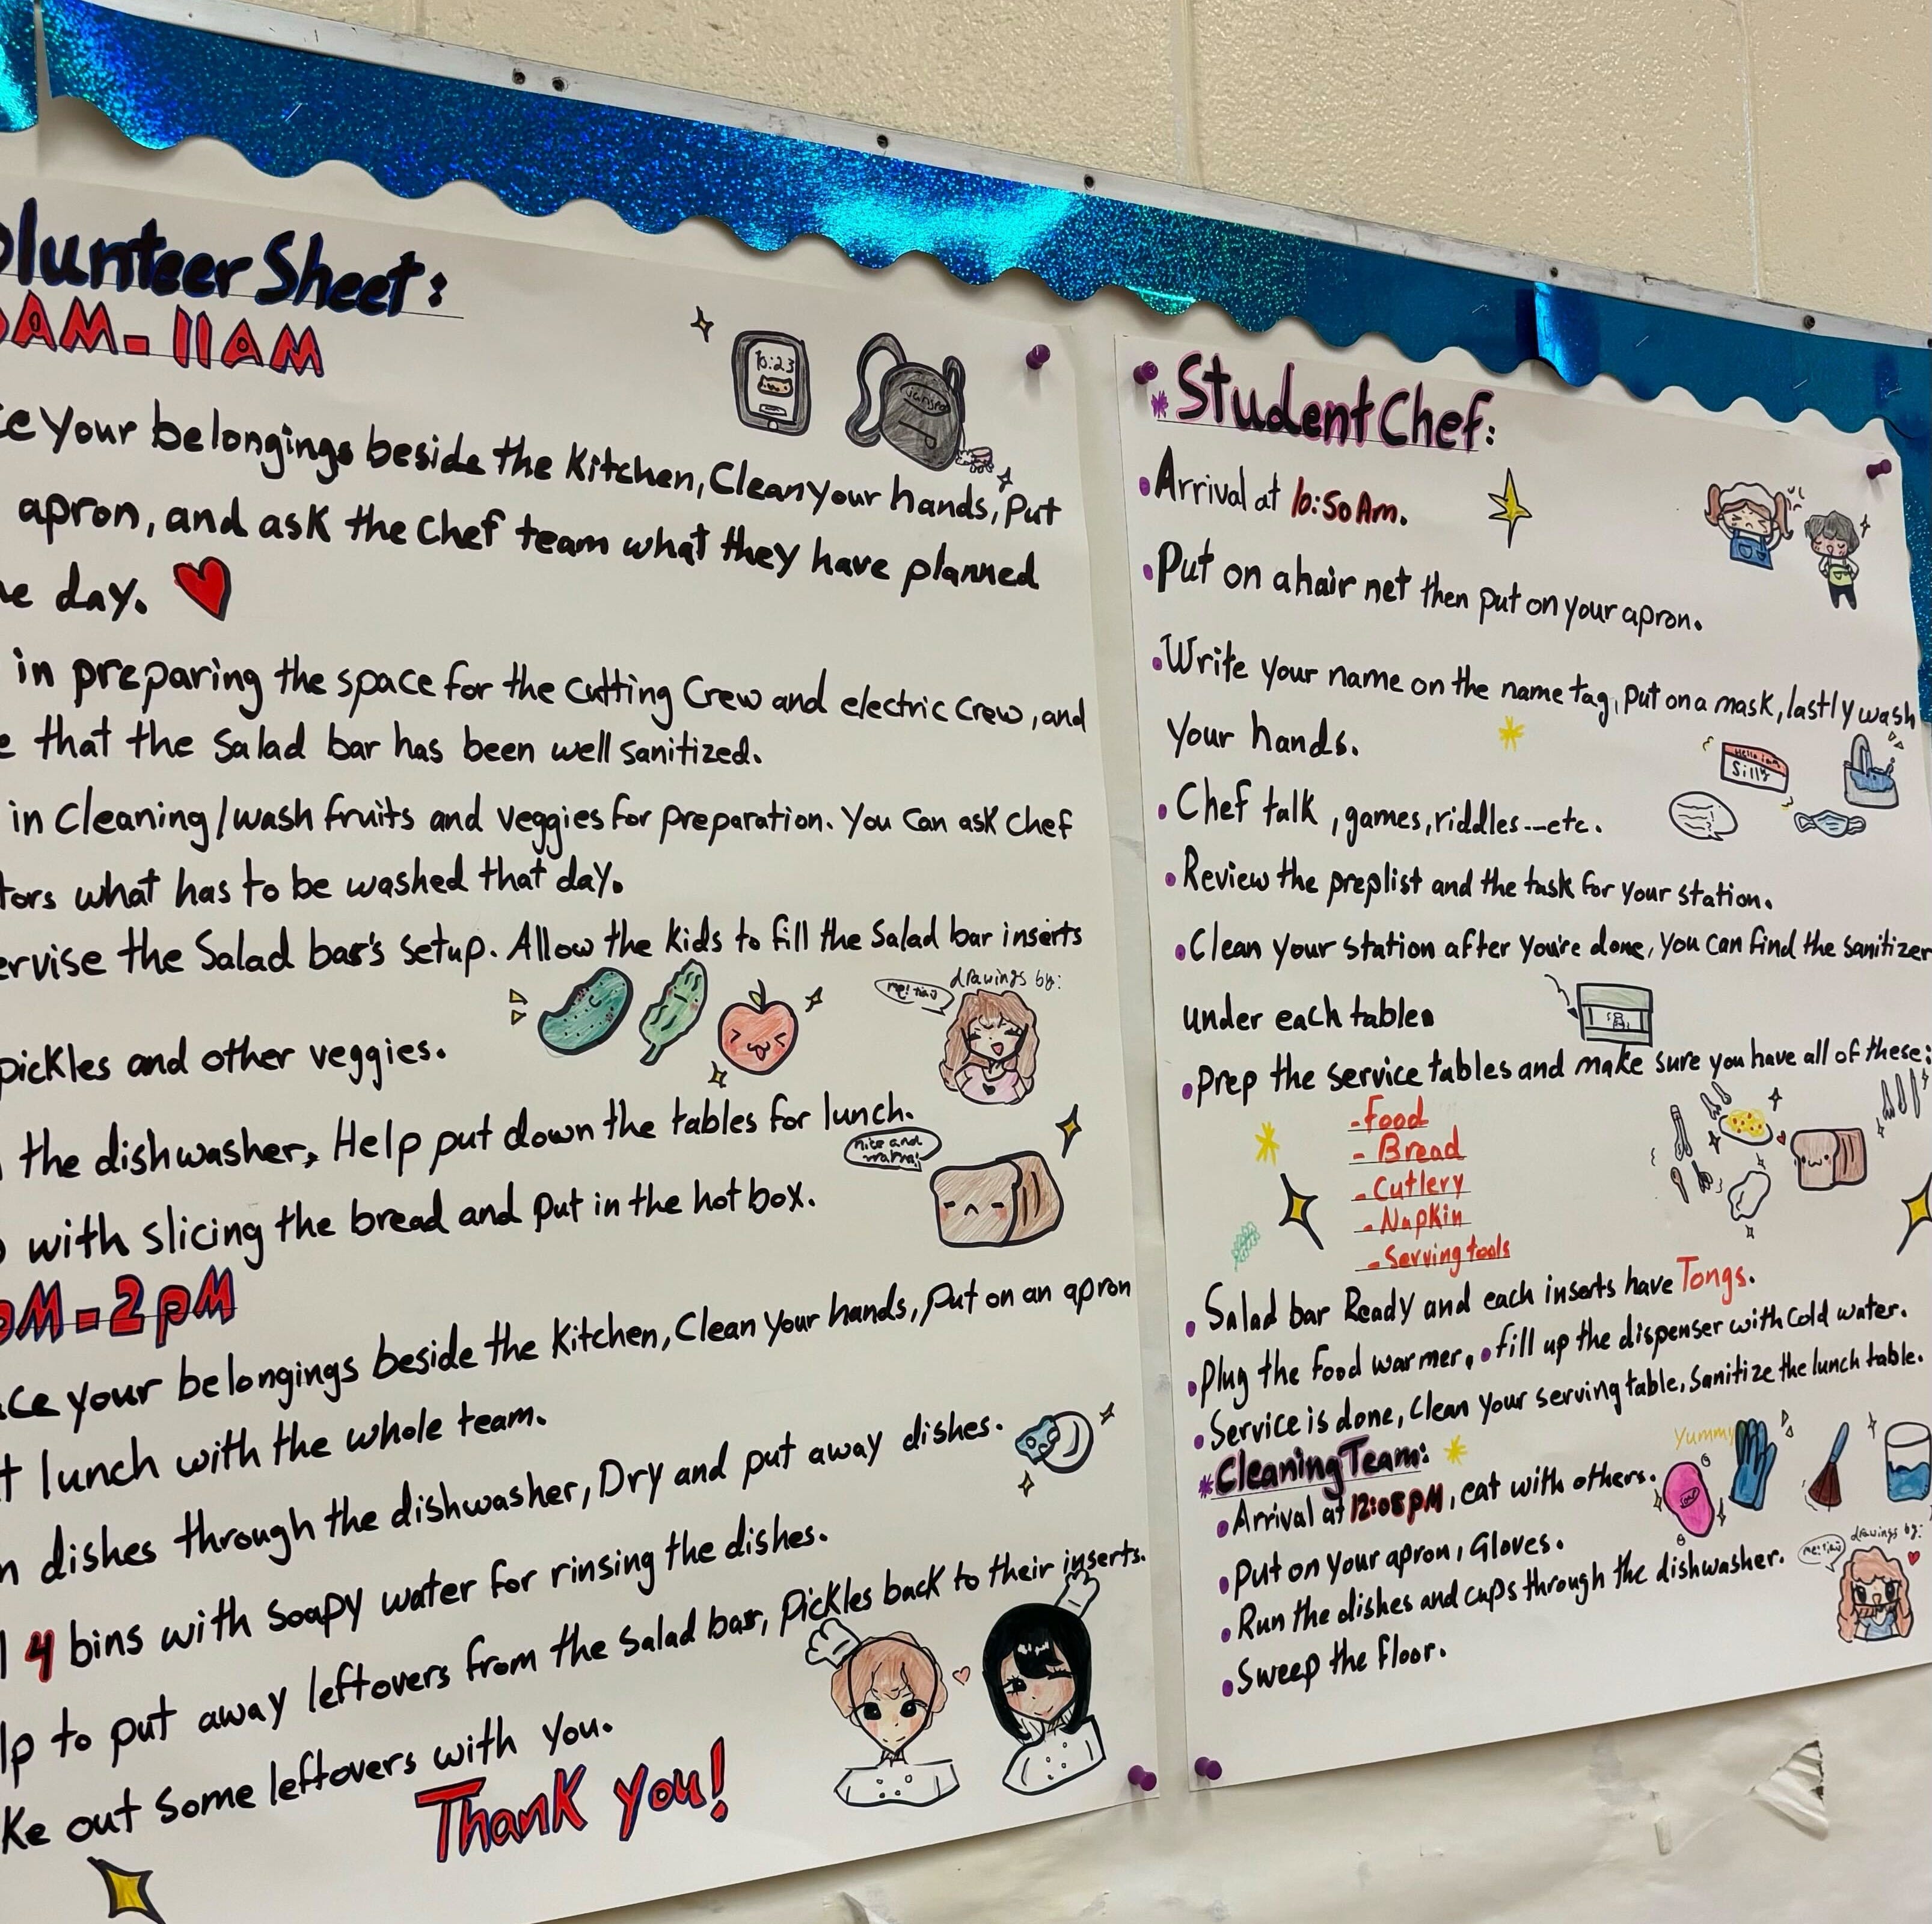 olunteer Sheet:
AM-11AM
10:23
ce your belongings beside the Kitchen, Clean your hands, Put
apron, and ask the Chef team what they have planned
he day.
in preparing the space for the Cutting Crew and electric Crew, and
e that the Salad bar has been well sanitized.
in Cleaning/wash fruits and veggies for preparation. You Can ask Chef
tors what has to be washed that day.
ervise the Salad bar's setup. Allow the kids to fill the Salad bar inserts
drawings by:
me!
pickles and other veggies.
the dishwasher, Help put down the tables for lunch.
nice and
warm!
with slicing the bread and put in the hot box.
PM-2pM
ace your belongings beside the Kitchen, Clean your hands, put on an apron
t lunch with the whole team.
n dishes through the dishwasher, Dry and put away dishes.
l 4 bins with Soapy water for rinsing the dishes.
lp to put away leftovers from the Salad bar, Pickles back to their inserts.
ke out Some leftovers with you.
Thank you!
*Student Chef:
•Arrival at 10:50Am.
•Put on a hair net then put on your apron.
•Write your name on the name tag, put on a mask, lastly wash
your hands.
Hello i am
Silly
•Chef talk, games, riddles---etc.
•Review the preplist and the task for your station.
•Clean your station after you're done, you can find the sanitizer
under each table.
•prep the service tables and make sure you have all of these:
-Food
- Bread
-Cutlery
-Napkin
-Serving tools
•Salad bar Ready and each inserts have Tongs.
•plug the food warmer. •fill up the dispenser with Cold water.
•Service is done, Clean your serving table, Sanitize the lunch table.
*Cleaning Team:
Yummy
•Arrival at 12:05pM, eat with others.
•Put on your apron, Gloves.
•Run the dishes and cups through the dishwasher.
drawings by:
•Sweep the floor.